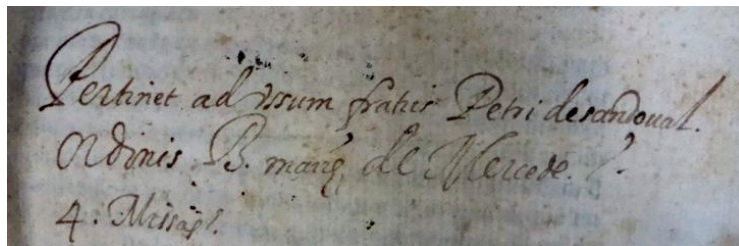 Pertinet ad vsum fratris Petri desandoual.
Ordinis B. marię de Mercede.
4. Missas